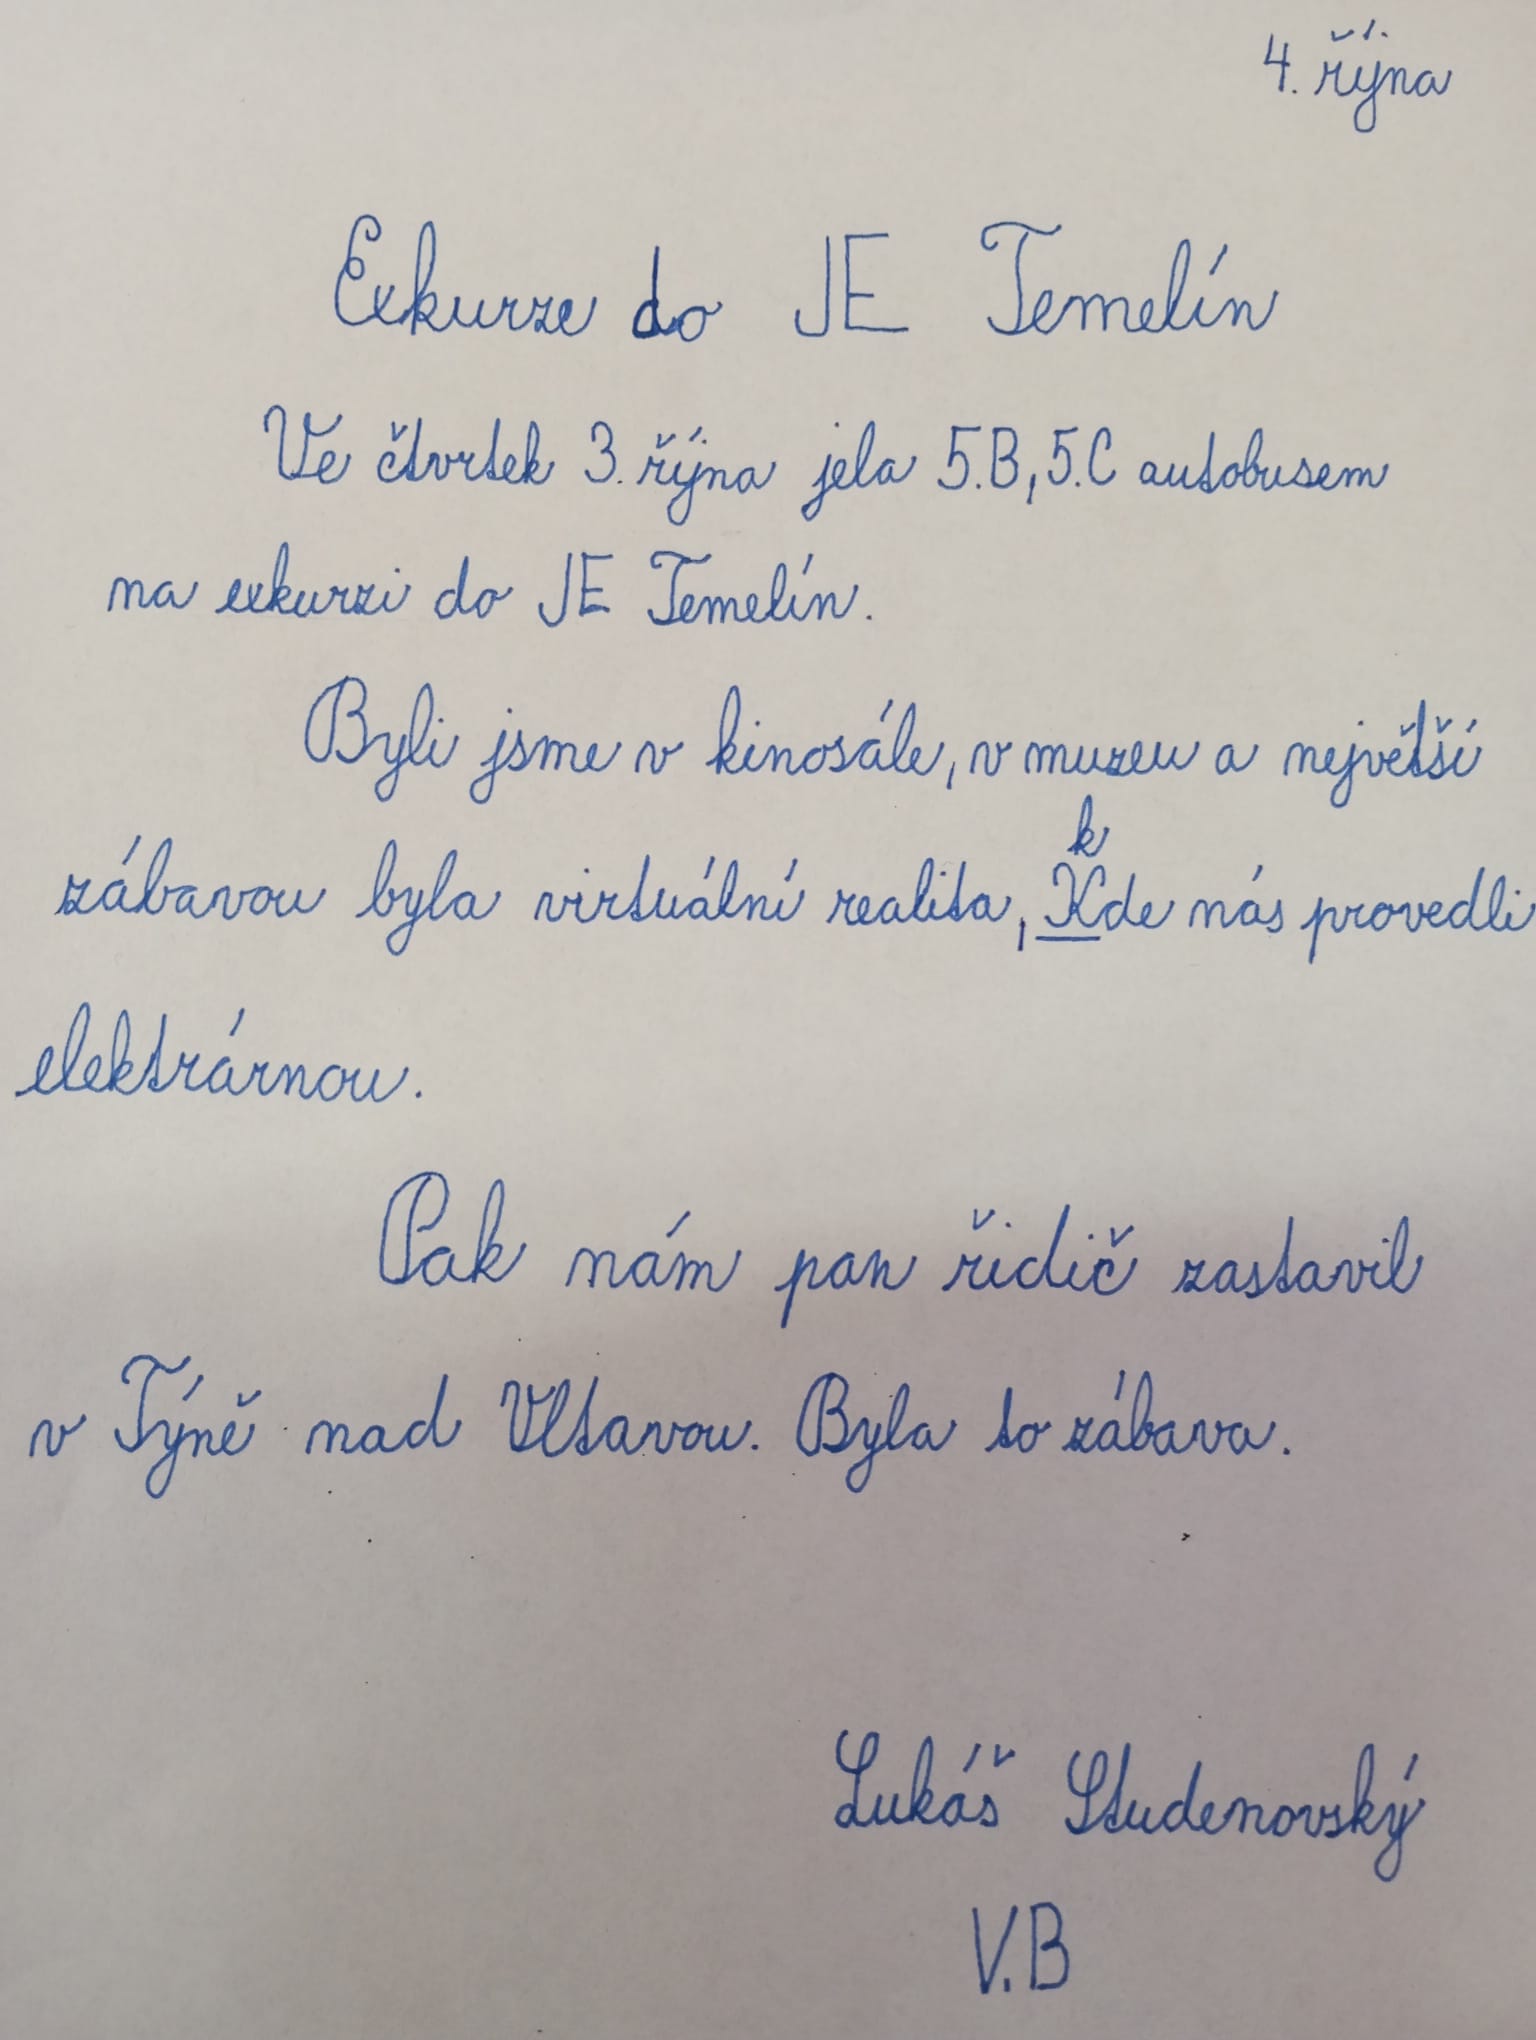 4. říjná
Exkurze do JE Temelín
Ve čtvrtek 3. října jela 5.B, 5.C autobusem
na exkurzi do JE Temelín.
Byli jsme v kinosále, v muzeu a největší
k
zábavou byla virtuální realita, Kde nás provedli
elektrárnou.
Pak nám pan řidič zastavil
v Týně nad Vltavou. Byla to zábava.
Lukáš Studenovský
V.B